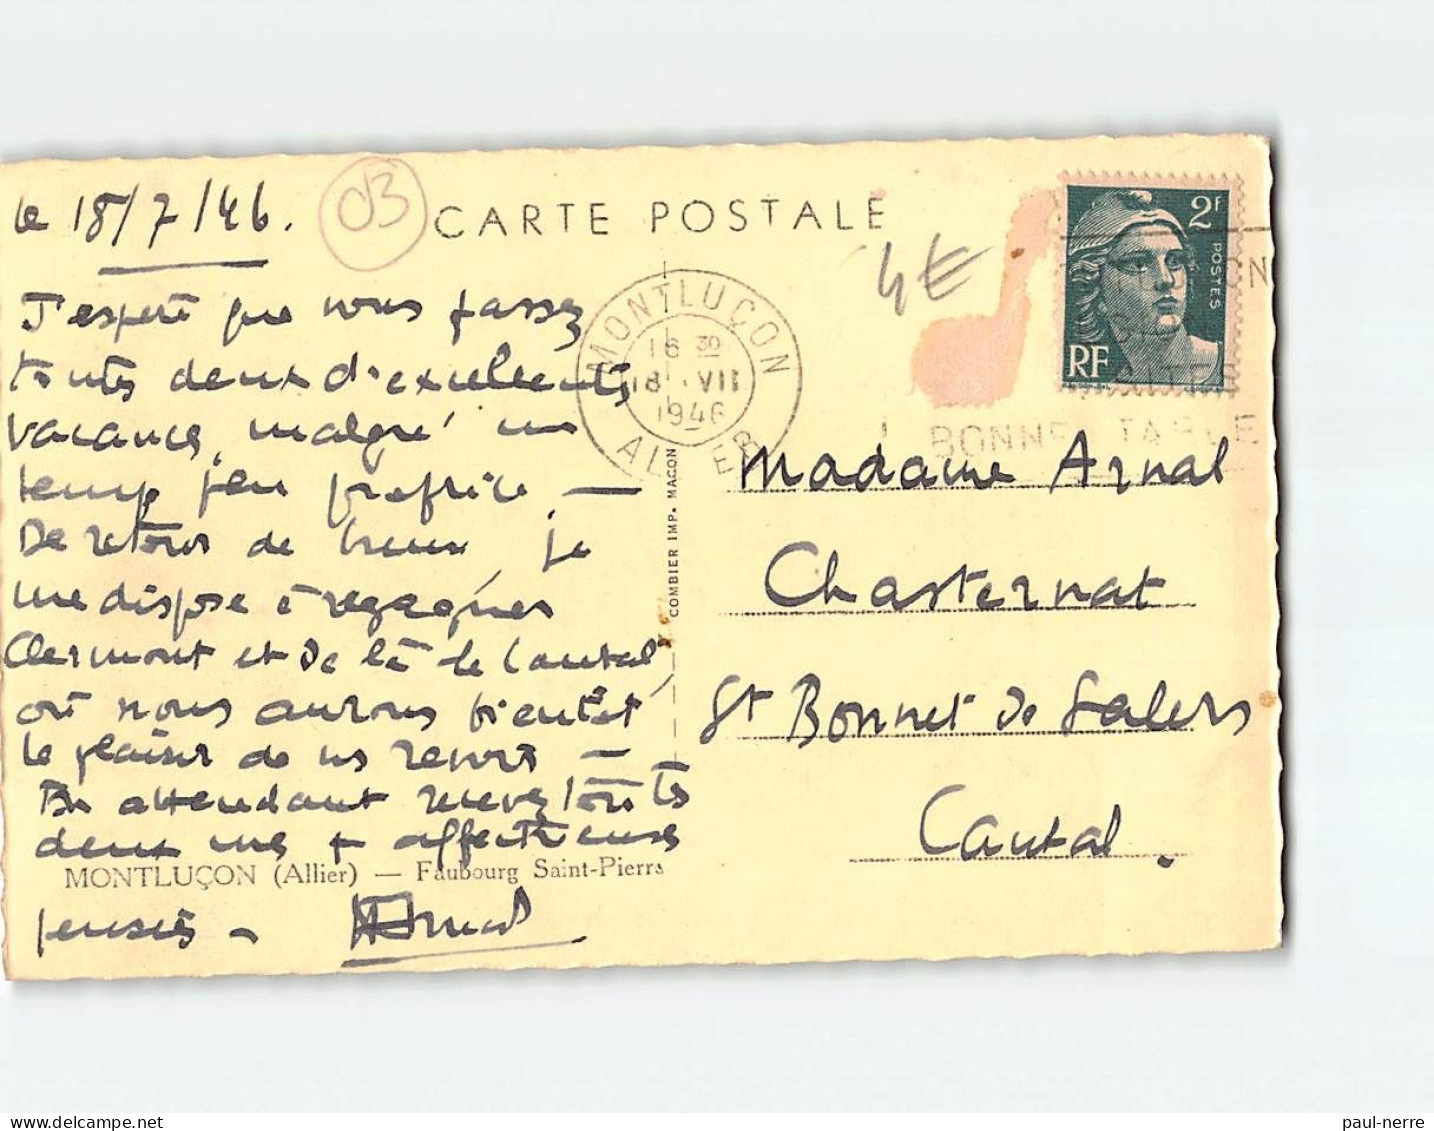 le 18/7/46.
03
CARTE POSTALE
4€
2F
POSTES
RF
MONTLUÇON
16 30
18 VII
1946
BONNE TABLE
J'espère que vous passez
toutes deux d'excellentes
vacances, malgré un
temps peu propice —
De retour de je
me dispose à regagner
Clermont et de là le Cantal,
où nous aurons bientôt
le plaisir de vs revoir —
En attendant recevez toutes
deux mes + affectueuses
MONTLUÇON (Allier) — Faubourg Saint-Pierre
pensées — Arnal
COMBIER IMP. MACON
Madame Arnal
Chasternat
St Bonnet de Salers
Cantal.
paul-nerre